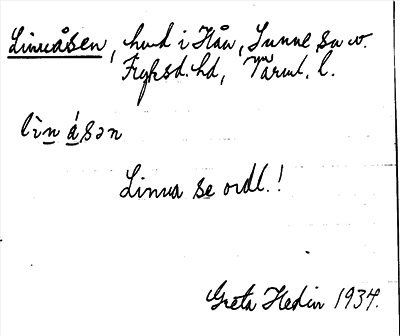 Linnåsen, hmd i Hån, Sunne sn v.
Fryksd. hd, Värml. l.
lìn ásən
Linna se ordl.!
Greta Hedin 1934.